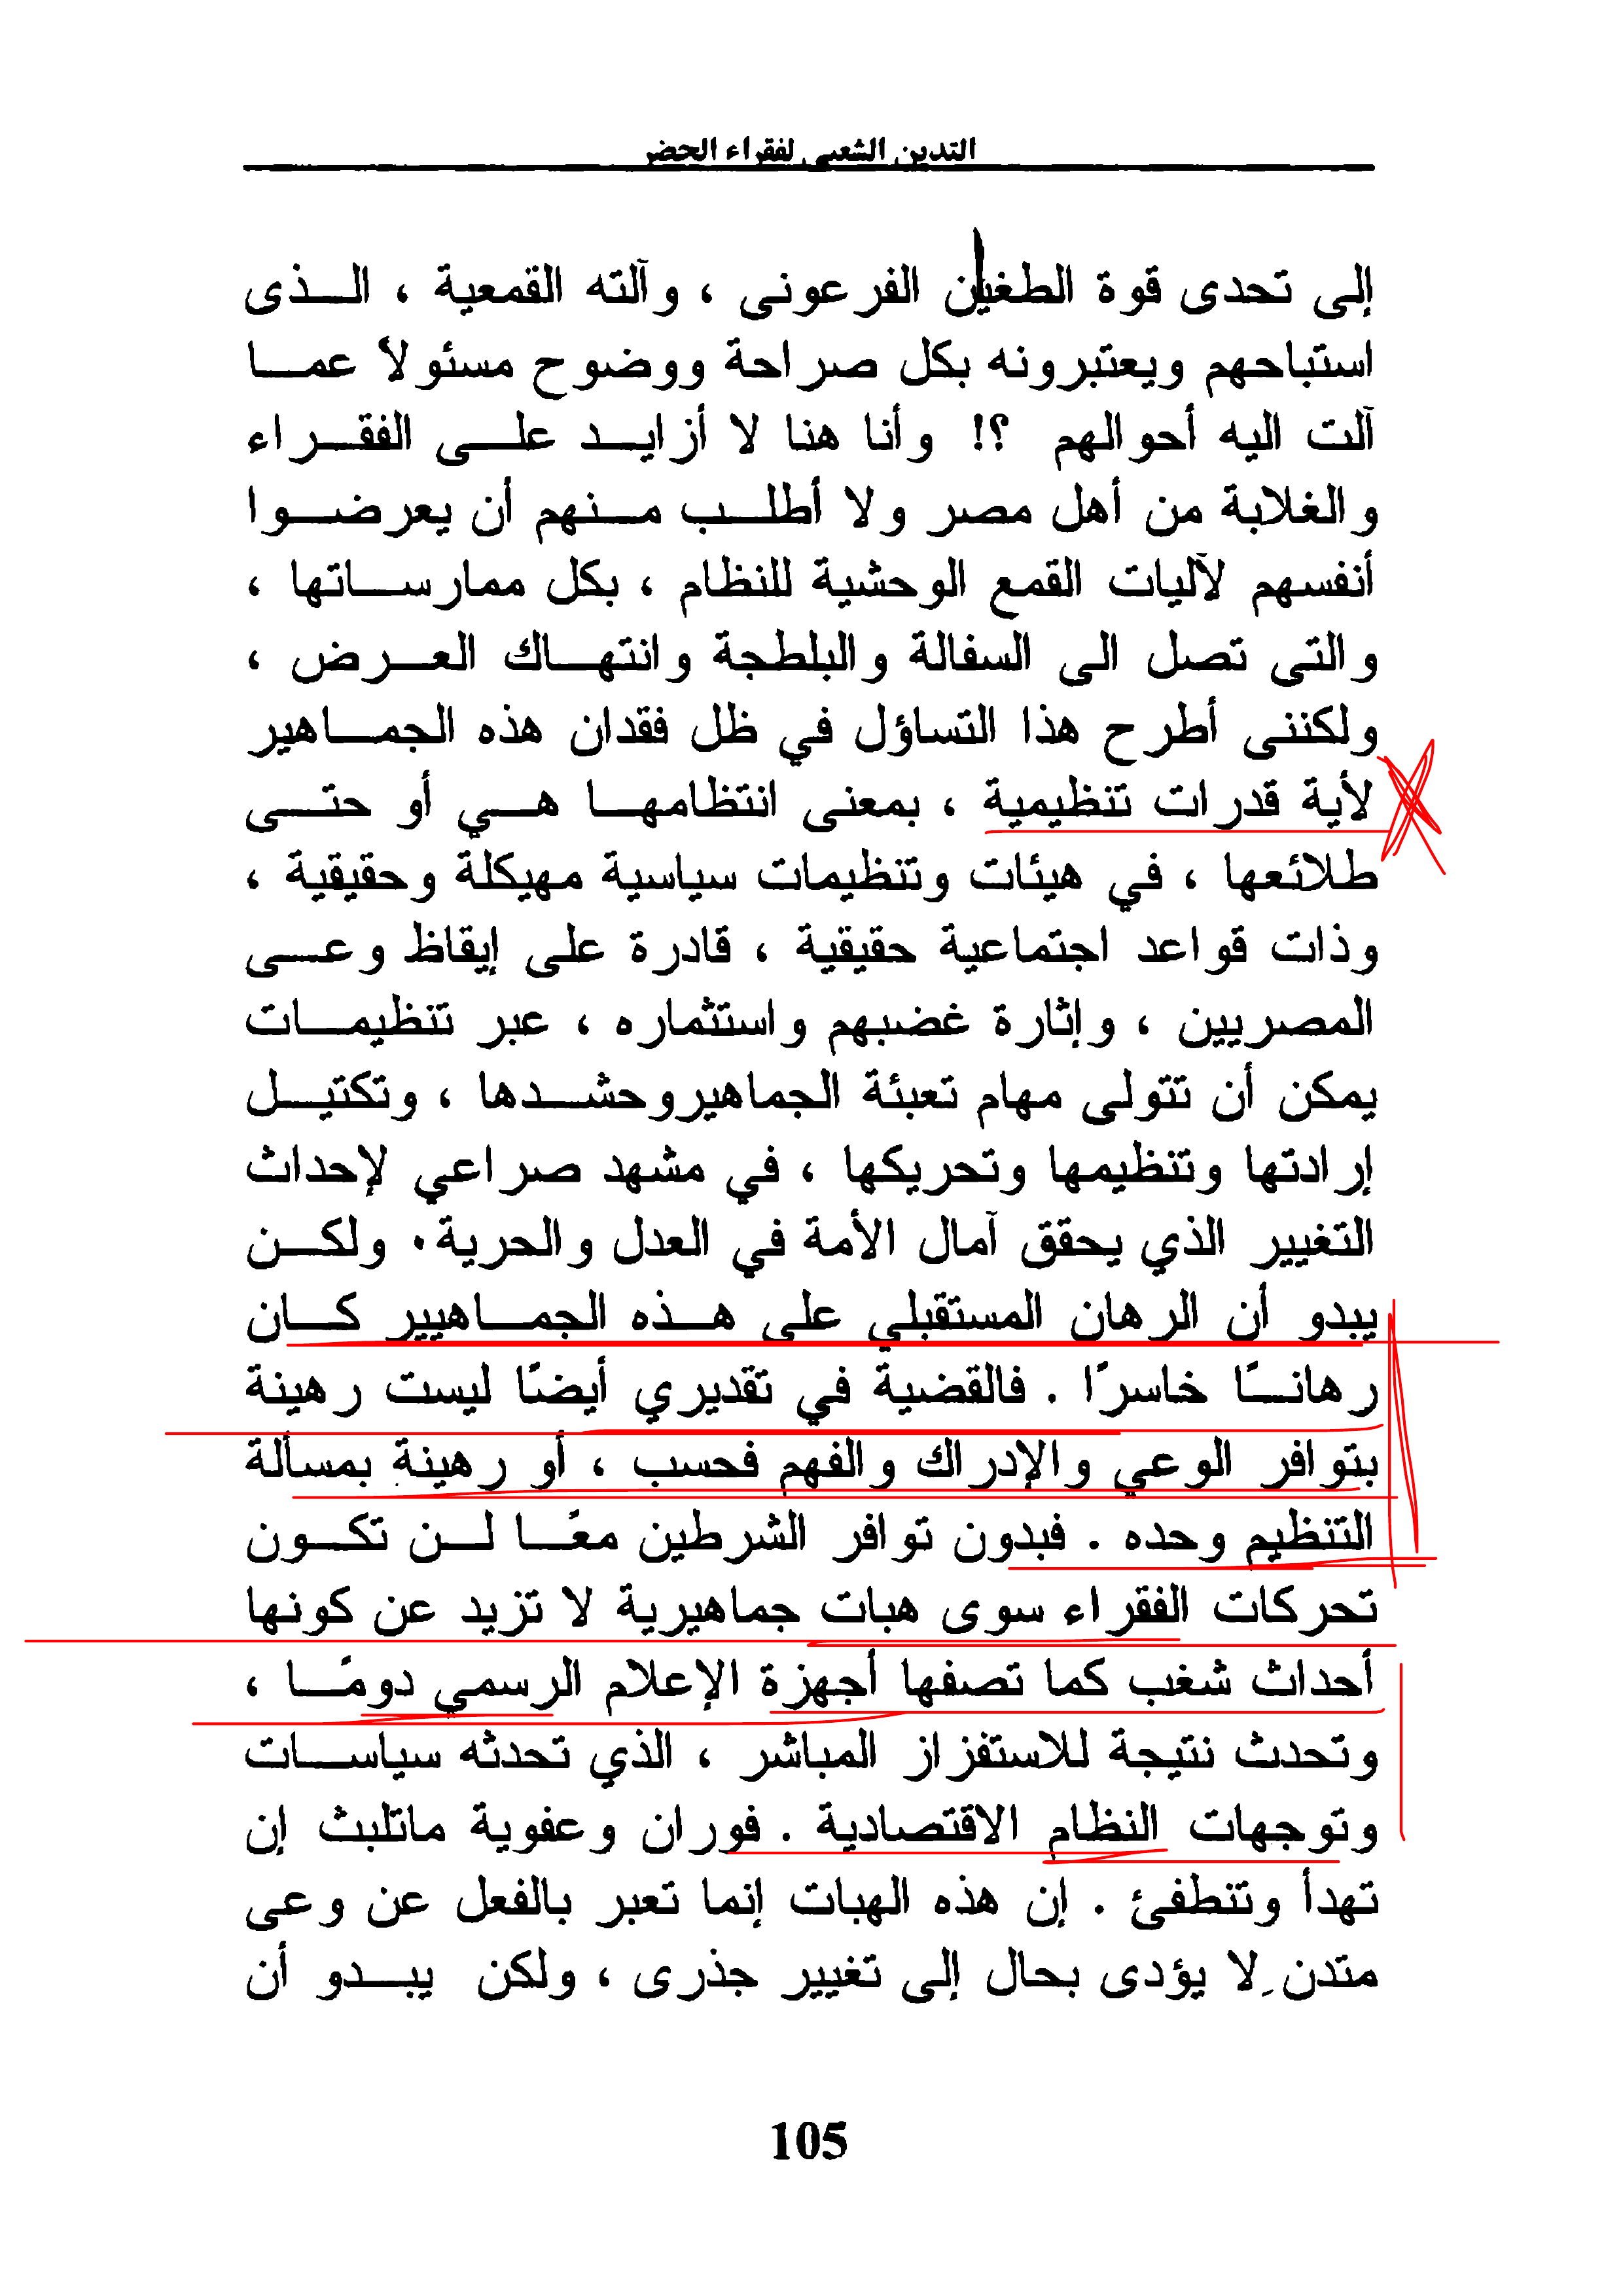 التدين الشعبى لفقراء الحضر
إلى تحدى قوة الطغيان الفرعونى ، وآلته القمعية ، الـــذى
استباحهم ويعتبرونه بكل صراحة ووضوح مسئولاً عمـــا
آلت اليه أحوالهم ؟! وأنا هنا لا أزايـــد علـــى الفقـــراء
والغلابة من أهل مصر ولا أطلـــب مـــنهم أن يعرضـــوا
أنفسهم لآليات القمع الوحشية للنظام ، بكل ممارســـاتها ،
والتى تصل الى السفالة والبلطجة وانتهـــاك العـــرض ،
ولكننى أطرح هذا التساؤل في ظل فقدان هذه الجمـــاهير
لأية قدرات تنظيمية ، بمعنى انتظامهـــا هـــي أو حتـــى
طلائعها ، في هيئات وتنظيمات سياسية مهيكلة وحقيقية ،
وذات قواعد اجتماعية حقيقية ، قادرة على إيقاظ وعـــى
المصريين ، وإثارة غضبهم واستثماره ، عبر تنظيمـــات
يمكن أن تتولى مهام تعبئة الجماهيروحشـــدها ، وتكتيـــل
إرادتها وتنظيمها وتحريكها ، في مشهد صراعي لإحداث
التغيير الذي يحقق آمال الأمة في العدل والحرية. ولكـــن
يبدو أن الرهان المستقبلي على هـــذه الجمـــاهيير كـــان
رهانـــًا خاسرًا . فالقضية في تقديري أيضًا ليست رهينة
بتوافر الوعي والإدراك والفهم فحسب ، أو رهينة بمسألة
التنظيم وحده . فبدون توافر الشرطين معًـــا لـــن تكـــون
تحركات الفقراء سوى هبات جماهيرية لا تزيد عن كونها
أحداث شغب كما تصفها أجهزة الإعلام الرسمي دومًـــا ،
وتحدث نتيجة للاستفزاز المباشر ، الذي تحدثه سياســـات
وتوجهات النظام الاقتصادية . فوران وعفوية ماتلبث إن
تهدأ وتنطفئ . إن هذه الهبات إنما تعبر بالفعل عن وعى
متدنٍ لا يؤدى بحال إلى تغيير جذرى ، ولكن يبـــدو أن
105